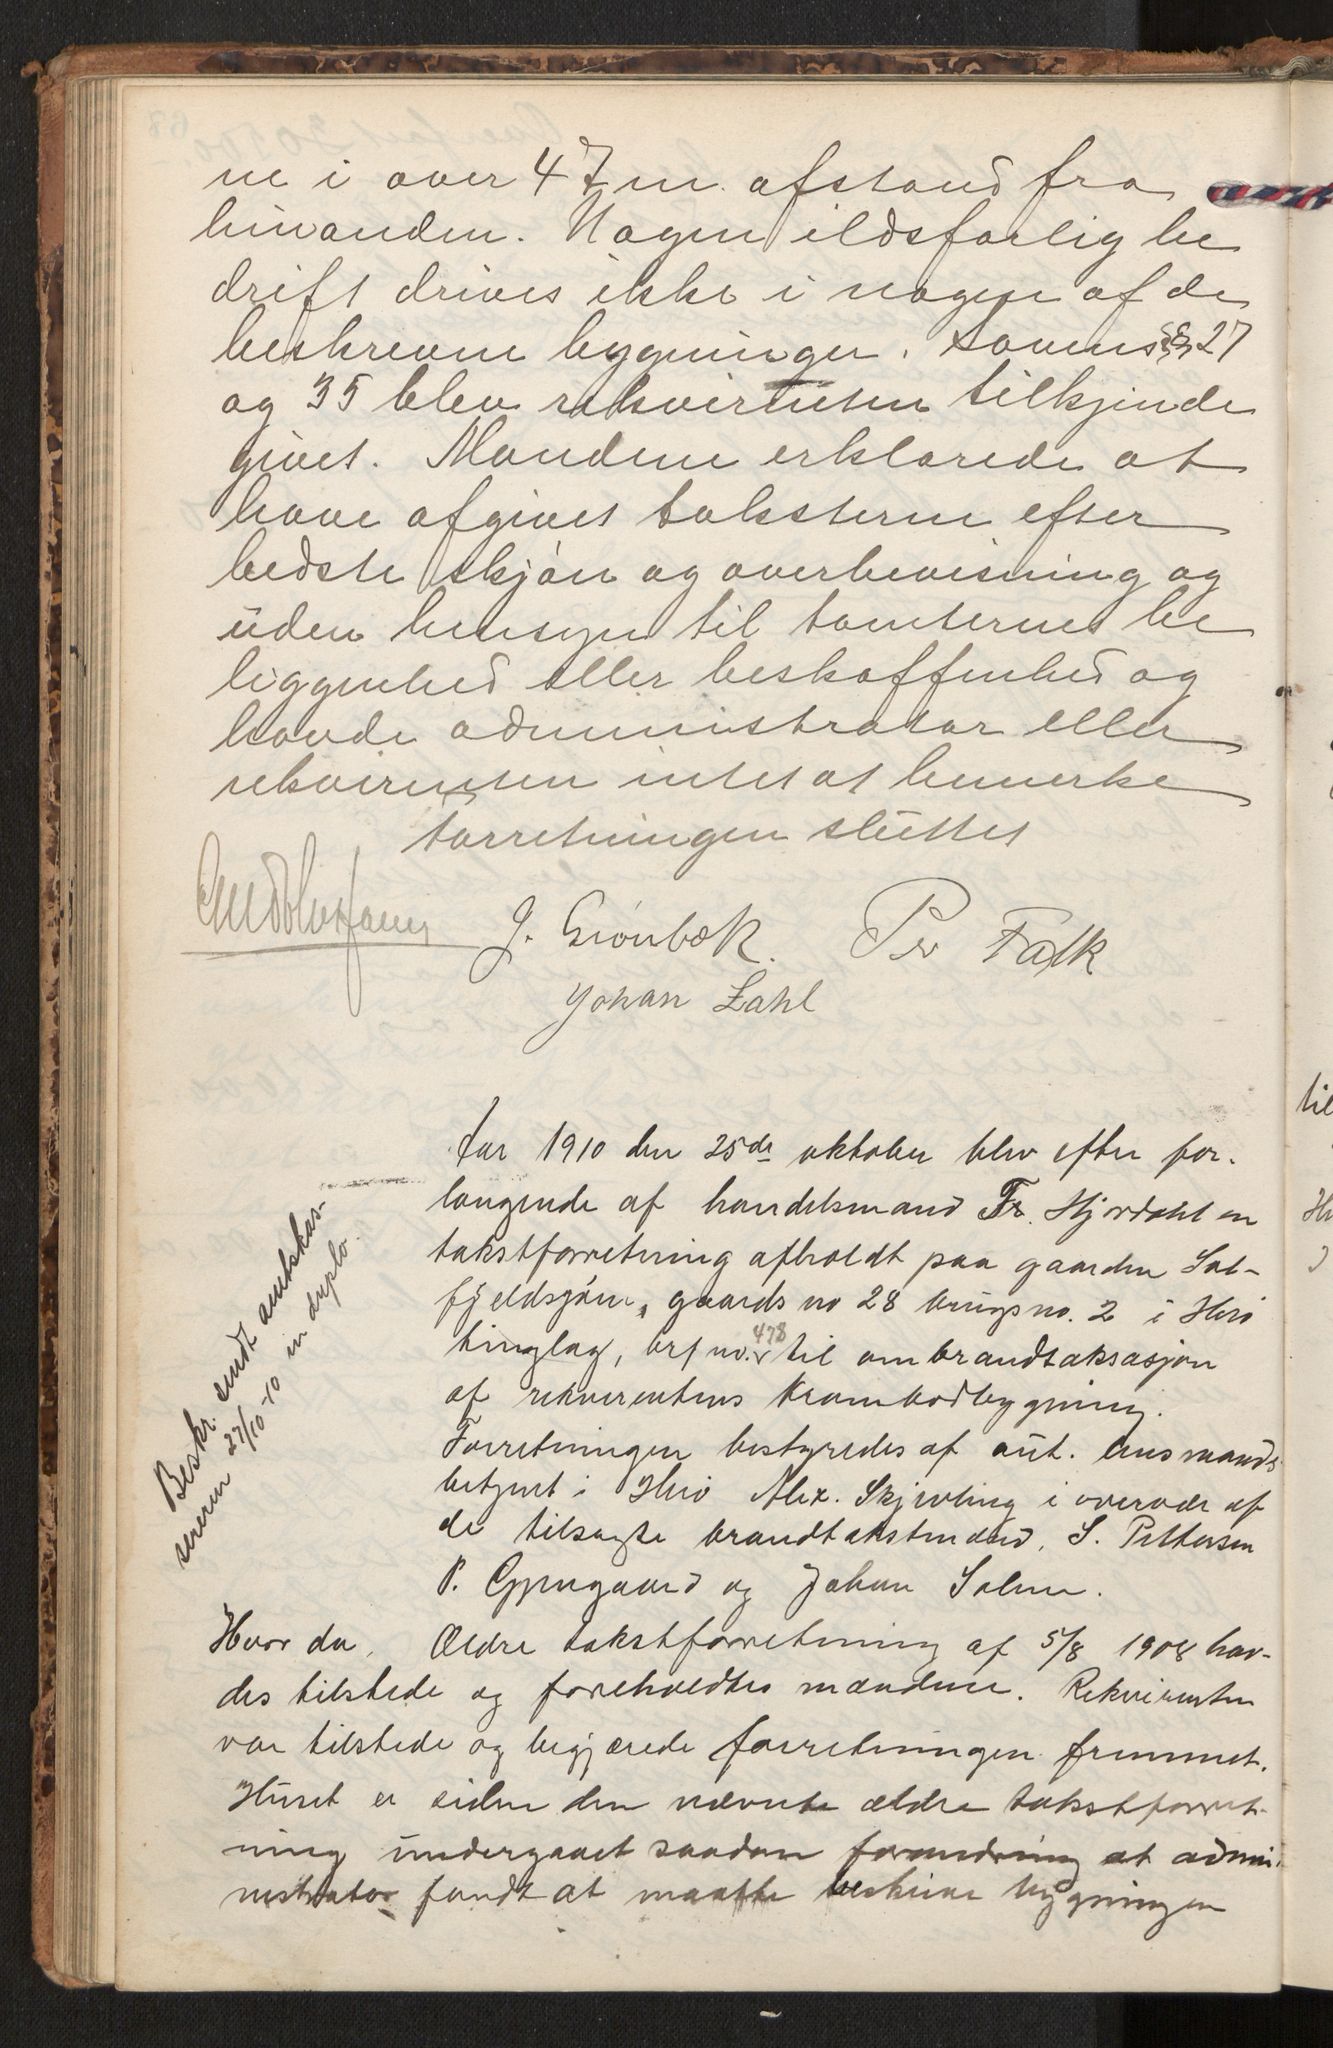 ne i over 47 m. afstand fra
hinanden. Nogen ildsfarlig be
drift drives ikke i nogen af de
beskrevne bygninger. Lovens §§ 27
og 35 blev rekvirenten tilkjende
givet. Mændene erklærede at
have afgivet taksterne efter
bedste skjøn og overbevisning og
uden hensyn til tomternes be
liggenhed eller beskaffenhed og
havde administrator eller
rekvirenten intet at bemerke
Forretningen sluttet
J. Grønbæk. Per Falk
Johan Zahl
Aar 1910 den 25de oktober blev efter for-
langende af handelsmand Fr. Hjordahl en
takstforretning afholdt paa gaarden Sat-
fjeldsjøen, gaards no 28 brugsno. 2 i Herø
tinglag, brf no. 478 til ombrandtaksasjon
af rekvirentens Krambodbygning.
Forretningen bestyredes af aut. lensmands
betjent i Herø Alex. Skjevling i overvær af
de tilsagte brandtakstmænd, S. Pettersen
P. Gjengaard og Johan Solem.
Beskr. sendt amtskas-
sereren 27/10-10 in duplo.
Hvor da. Ældre takstforretning af 5/8 1908 hav-
des tilstede og foreholdtes mændene. Rekvirenten
var tilstede og begjærede forretningen fremmet.
Huset er siden den nævnte ældre takstforret-
ning undergaaet saadan forandring at admi-
nistrator fandt at maatte beskrive bygningen
til